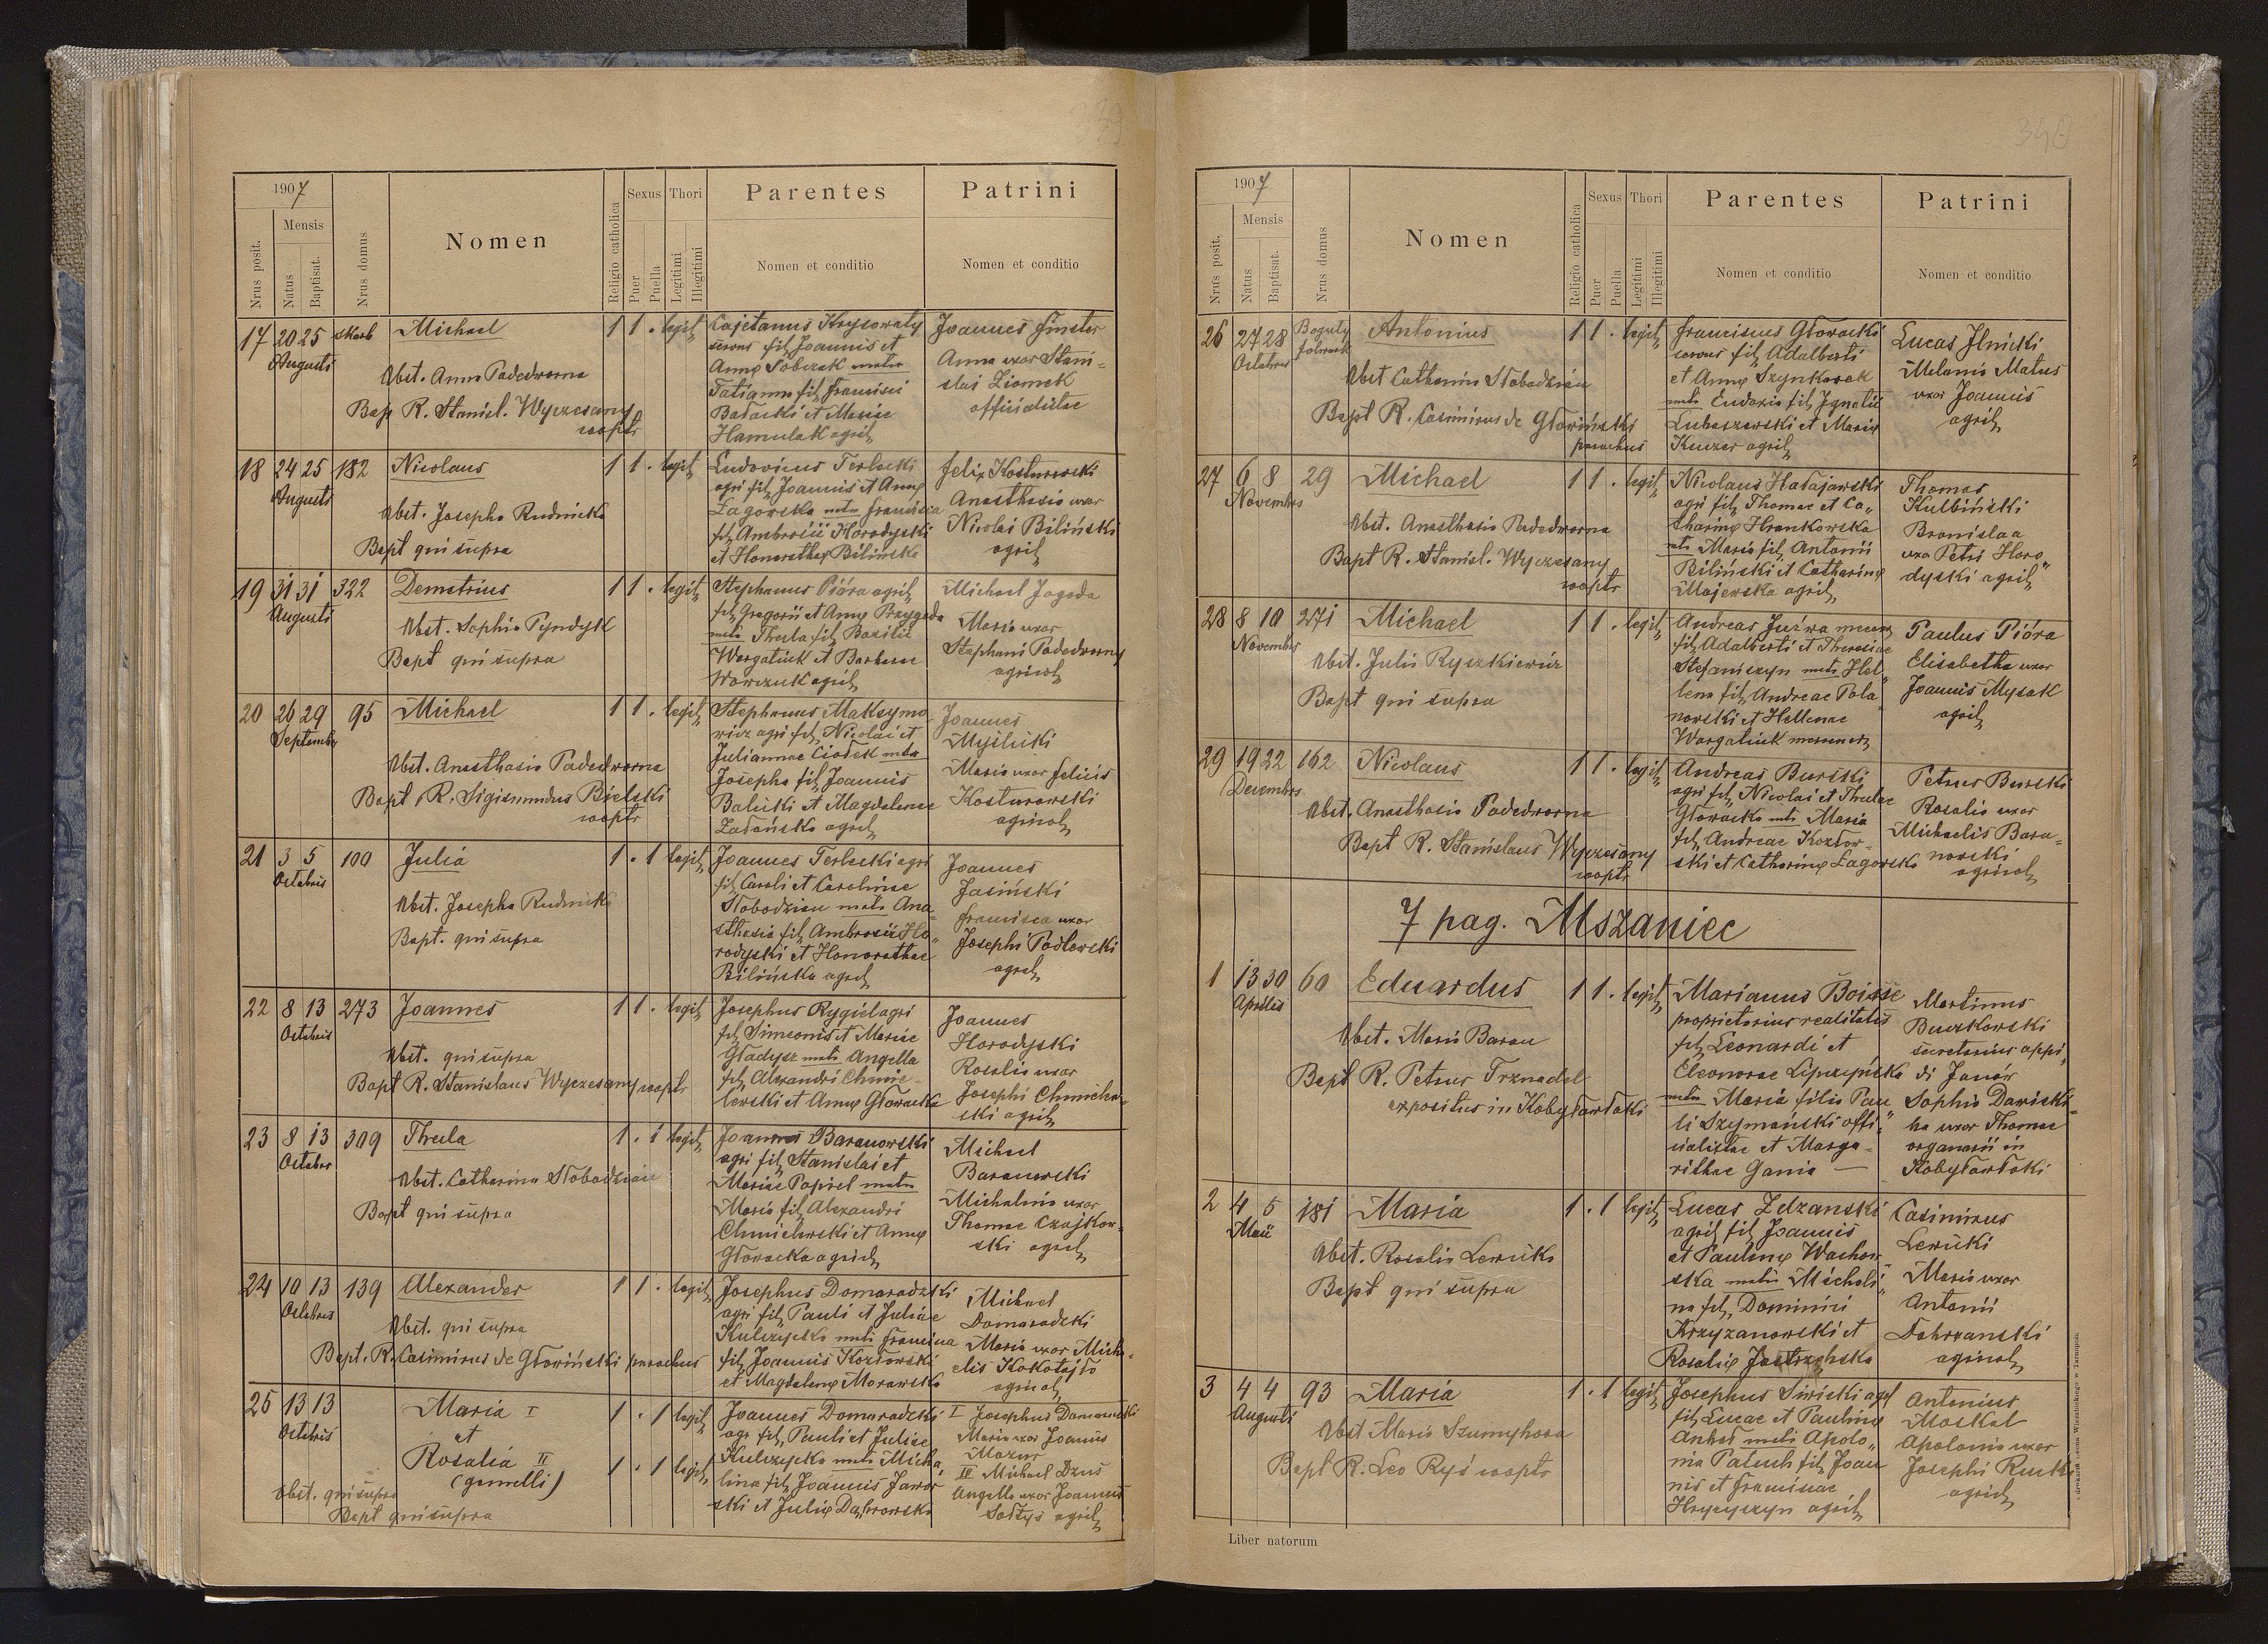 379
1907
Mensis
Nrus posit.
Natus
Baptisat.
Nrus domus
Nomen
Religio catholica
Sexus
Puer
Puella
Thori
Legitimi
Illegitimi
Parentes
Nomen et conditio
Patrini
Nomen et conditio
17 20 25 skarb Michael 1 1 . legit,
Augusti
Obst. Anna Padedworna
Bap R. Stanisl. Wyczesany
coopts
Cajetanus Krysowaty
servus fil, Joannis et
Annę Sobczak mater
Tatianna fil, Francisci
Batacki et Mariae
Hamulak agril,
Joannes Finster
Anna uxor Stani-
slai Ziomek
officialitae
18 24 25 182 Nicolaus 1 1 . legit,
Augusti
Obst. Josepha Rudnicka
Bapt qui supra
Ludovicus Terlecki
agri fil, Joannis et Annę
Łagowska mater Francisca
fil, Ambrosii Horodyski
et Honorathę Bilińska
Felix Kosturowski
Anasthasia uxor
Nicolai Biliński
agril,
19 31 31 322 Demetrius 1 1 . legit,
Augusti
Obst. Sophia Pyndyk
Bapt qui supra
Stephanus Pióra agril,
fil, Gregorii et Annę Przygoda
mat. Thecla fil, Basilii
Wargatiuk et Barbarae
Wowczuk agril,
Michael Jagoda
Maria uxor
Stephani Padedworny
agricol,
20 26 29 95 Michael 1 1 . legit,
Septembr
Obst. Anasthasia Padedworna
Bapt R. Sigismundus Bielski
coopts
Stephanus Maksymo-
wicz agri fil, Nicolai et
Juliannae Ciołek mater
Josepha fil, Joannis
Balicki et Magdalenae
Zadańska agril,
Joannes
Myślicki
Maria uxor Felicis
Kosturowski
agricol,
21 3 5 100 Julia 1 . 1 legit,
Octobris
Obst. Josepha Rudnicki
Bapt. qui supra
Joannes Terlecki agri
fil, Caroli et Carolinae
Słobodzian mater Ana-
sthasia fil, Ambrosii Ho„
rodyski et Honorathae
Bilińska agril,
Joannes
Jasiński
Francisca uxor
Josephi Podlewski
agril,
22 8 13 273 Joannes 1 1 . legit,
Octobris
Obst. qui supra
Bapt R. Stanislaus Wyczesany coopts
Josephus Rygiel agri
fil, Simeonis et Mariae
Gładysz mater Angella
fil, Alexandri Chmie-
lewski et Annę Głowacka
Joannes
Horodyski
Rosalia uxor
Josephi Chmielew-
ski agril,
23 8 13 309 Thecla 1 . 1 legit,
October
Obst. Catharina Słobodzian
Bapt qui supra
Joannes Baranowski
agri fil, Stanislai et
Mariae Papiel mater
Maria fil, Alexandri
Chmielewski et Annę
Głowacka agril,
Michael
Baranowski
Michalina uxor
Thomae Czajkow-
ski agril,
24 10 13 139 Alexander 1 1 . legit,
Octobris
Obst. qui supra
Bapt. R. Casimirus de Głowiński parochus
Josephus Domaradzki
agri fil, Pauli et Juliae
Kulczycka mat. Francisca
fil, Joannis Kozłowski
et Magdalenę Morawska
Michael
Domaradzki
Maria uxor Micha-
elis Kokotajło
agricol,
25 13 13 Maria I 1 . 1 legit,
Octobris
et
Rosalia II 1 . 1 legit,
(gemelli)
Obst. qui supra
Bapt qui supra
Joannes Domaradzki
agr fil, Pauli et Juliae
Kulczycka mater Micha„
lina fil, Joannis Jawor
ski et Julię Dąbrowska
I Josephus Domaradzki
Maria uxor Joannis
Mazur
II Michael Dzus
Angella uxor Joannis
Sołtys agril,
340
1907
Mensis
Nrus posit.
Natus
Baptisat.
Nrus domus
Nomen
Religio catholica
Sexus
Puer
Puella
Thori
Legitimi
Illegitimi
Parentes
Nomen et conditio
Patrini
Nomen et conditio
26 27 28 Boguty folwark Antonius 1 1 . legit,
Octobris
Obst Catharina Słobodzian
Bapt R. Casimirus de Głowiński
parochus
Franciscus Głowacki
servus fil, Adalberti
et Annę Szynkarek
mater Eudoxia fil, Ignatii
Lubaszewski et Marię
Kuczer agril,
Lucas Ilnicki
Melania Matus
uxor Joannis
agril,
27 6 8 29 Michael 1 1 . legit,
Novembris
Obst. Anasthasia Padedworna
Bapt R. Stanisl. Wyczesany
coopts
Nicolaus Hałajewski
agri fil, Thomae et Ca„
tharinę Hrenkowska
mat. Maria fil, Antonii
Biliński et Catharinę
Majewska agril,
Thomas
Kulbiński
Bronislaa
uxo Petri Horo„
dyski agril,
28 8 10 271 Michael 1 1 . legit,
Novembr
Obst. Julia Ryszkiewicz
Bapt qui supra
Andreas Juźwa mecen,
fil, Adalberti et Theresiae
Stefaniczyn mater Hel„
lena fil, Andreae Pola
nowski et Hellenae
Wargatiuk
Paulus Pióra
Elisabetha uxor
Joannis Mysak
agril,
29 19 22 162 Nicolaus 1 1 . legit,
Decembris
Obst. Anasthasia Padedworna
Bapt R. Stanislaus Wyczesany
coopts
Andreas Burski
agri fil, Nicolai et Theclae
Głowacka mat. Maria
fil, Andreae Kozłow-
ski et Catharinę Łagowska
Petrus Burski
Rosalia uxor
Michaelis Bara-
nowski
agricol,
7 pag. Mszaniec
1 13 30 60 Eduardus 1 1 . legit,
Aprilis
Obst. Maria Baran
Bapt R. Petrus Trznadel
expositus in Kobyłowłoki
Marianus Boisse
proprietarius realitatis
fil, Leonardi et
Eleonorae Lipczyńska
mater Maria filia Pau„
li Szymański offi„
cialistae et Marga-
rithae Gania —
Martinus
Buczkowski
secretarius oppi„
di Janów
Sophia Dawicki-
ha uxor Thomae
organarii in
Kobyłowłoki
2 4 5 181 Maria 1 . 1 legit,
Maii
Obst. Rosalia Lewicka
Bapt qui supra
Lucas Zdzanski
agril, fil, Joannis
et Paulinę Wachow-
ska mater Michali„
na fil, Dominici
Krzyzanowski et
Rosalię Jastrzębska
Casimirus
Lewicki
Maria uxor
Antonii
Dohrzanski
agricol,
3 4 4 93 Maria 1 . 1 legit,
Augusti
Obst Maria Szumyhora
Bapt R. Leo Ryś coopts
Josephus Siwicki agril
fil, Lucae et Paulinę
Ankoś mater Apolo„
nia Paluch fil, Joan
nis et Francisae
Hryczyczyn agril,
Antonius
Moskal
Apolonia uxor
Josephi Rucki
agril,
Liber natorum
z drukarni Leona Wierzbickiego w Tarnopolu.